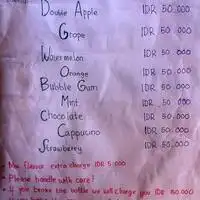 Double Apple IDR 50.000
Grape IDR 50.000
Watermelon IDR 50.000
Orange IDR 50.000
Bubble Gum IDR 50.000
Mint IDR 50.000
Chocolate IDR 50.000
Cappucino IDR 50.000
Strawberry IDR 50.000
• Mix Flavour extra charge IDR 5.000
• Please handle with care!
• If you broke the bottle we will charge you IDR